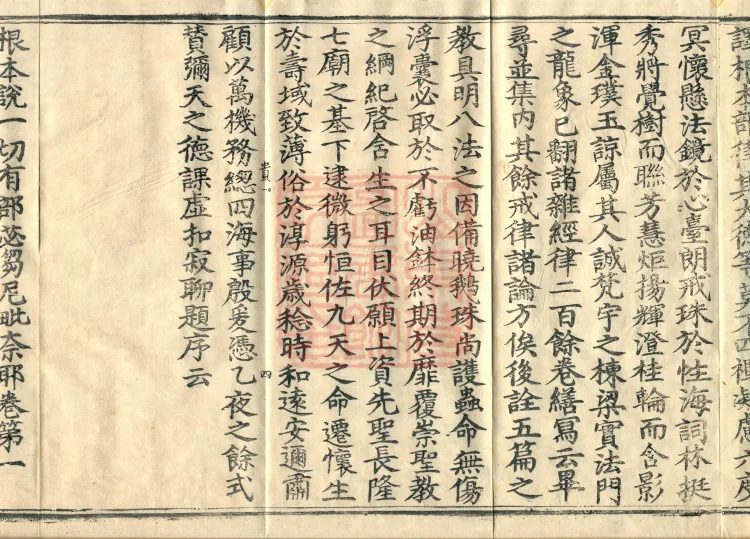 譯根本部律其大德等莫不四禪凝慮六度
冥懷懸法鏡於心臺朗戒珠於性海詞林挺
秀將覺樹而聯芳慧炬揚輝澄桂輪而含影
渾金璞玉諒屬其人誠梵宇之棟梁實法門
之龍象已翻諸雜經律二百餘卷繕寫云畢
尋並集內其餘戒律諸論方俟後詮五篇之
教具明八法之因備曉鵝珠尚護蟲命無傷
浮囊必取於不虧油鉢終期於靡覆崇聖教
之綱紀啓含生之耳目伏願上資先聖長隆
七廟之基下逮微躬恒佐九天之命遷懷生
於壽域致薄俗於淳源歲稔時和遠安邇肅
貴一 四
顧以萬機務總四海事殷爰憑乙夜之餘式
賛彌天之德課虛扣寂聊題序云
根本說一切有部苾芻尼毗奈耶卷第一